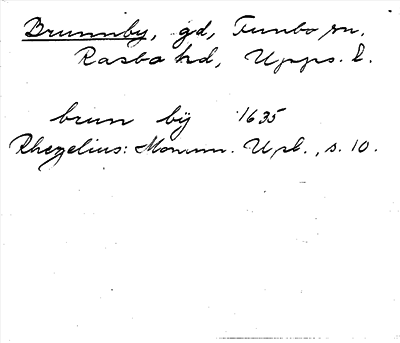 Brunnby, gd, Funbo sn.
Rasbo hd, Upps. l.
brun bÿ 1635
Rhezelius: Monum. Upl., s. 10.